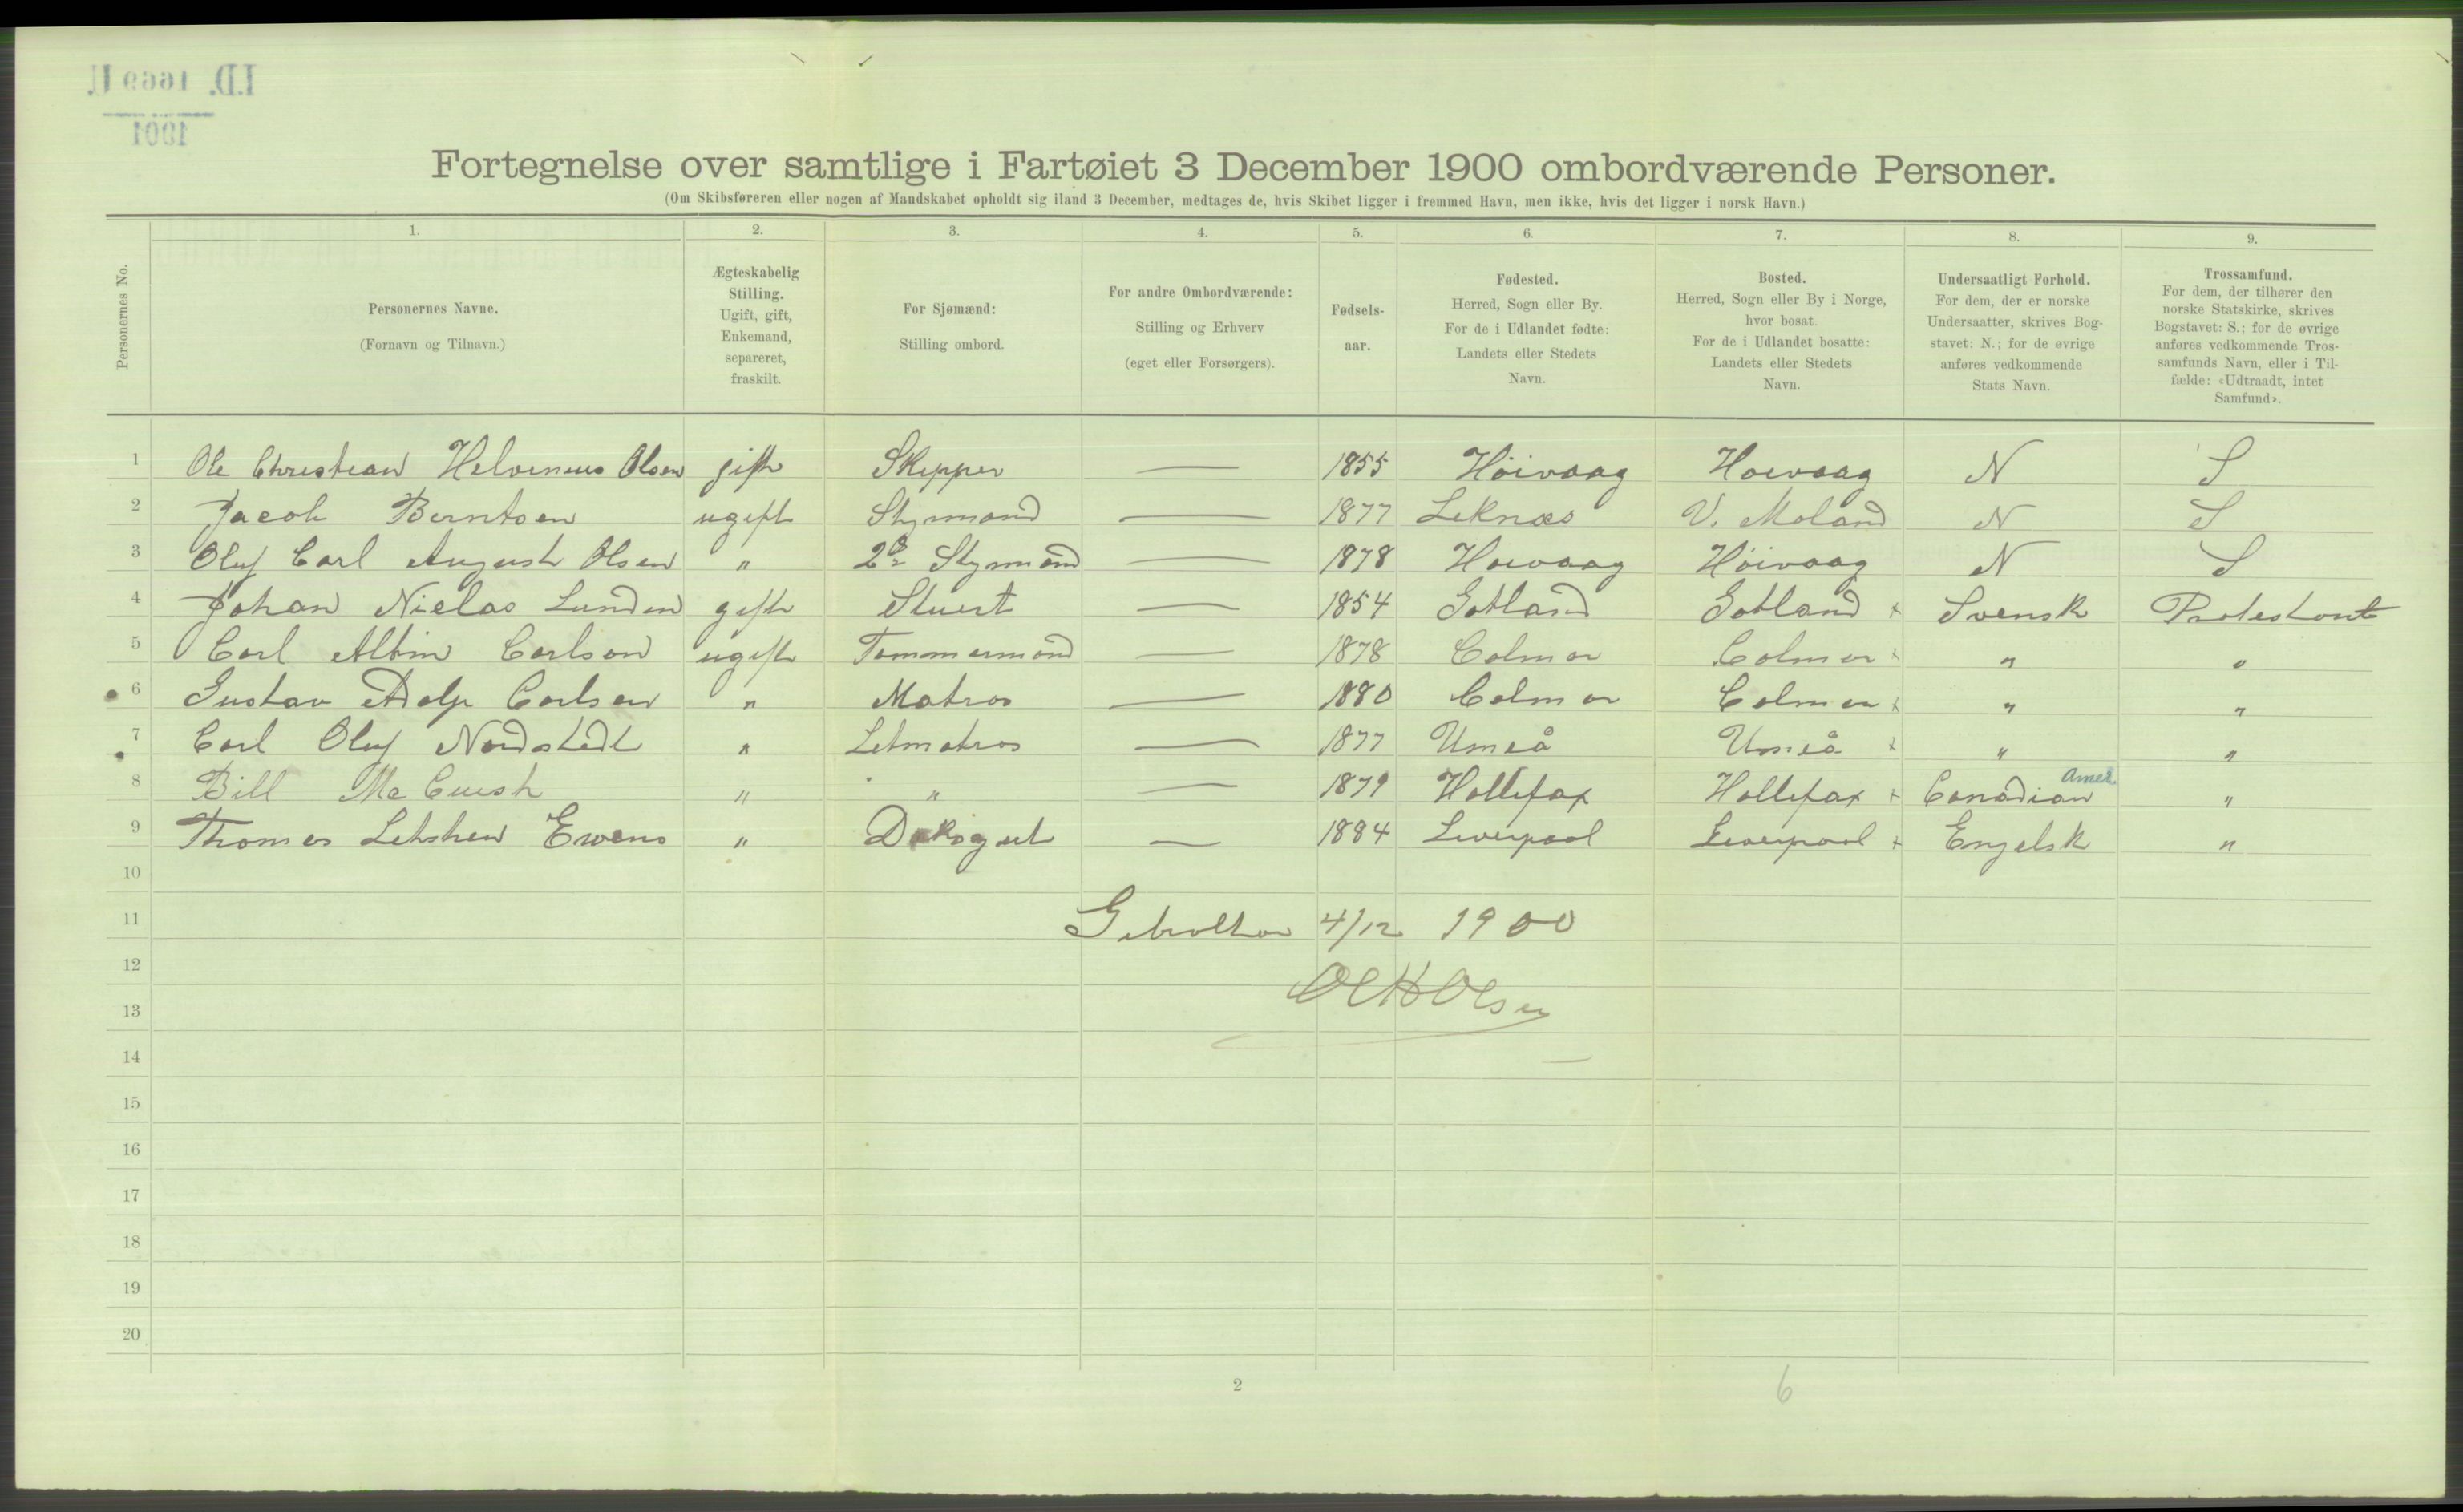 I.D. 1669 II
1901
Fortegnelse over samtlige i Fartøiet 3 December 1900 ombordværende Personer.
(Om Skibsføreren eller nogen af Mandskabet opholdt sig iland 3 December, medtages de, hvis Skibet ligger i fremmed Havn, men ikke, hvis det ligger i norsk Havn.)
Personernes No.
1.
Personernes Navne.
(Fornavn og Tilnavn.)
2.
Ægteskabelig
Stilling.
Ugift, gift,
Enkemand,
separeret,
fraskilt.
3.
For Sjømænd:
Stilling ombord.
4.
For andre Ombordværende:
Stilling og Erhverv
(eget eller Forsørgers).
5.
Fødsels-
aar.
6.
Fødested.
Herred, Sogn eller By.
For de i Udlandet fødte:
Landets eller Stedets
Navn.
7.
Bosted.
Herred, Sogn eller By i Norge,
hvor bosat.
For de i Udlandet bosatte:
Landets eller Stedets
Navn.
8.
Undersaatligt Forhold.
For dem, der er norske
Undersaatter, skrives Bog-
stavet: N.; for de øvrige
anføres vedkommende
Stats Navn.
9.
Trossamfund.
For dem, der tilhører den
norske Statskirke, skrives
Bogstavet: S.; for de øvrige
anføres vedkommende Tros-
samfunds Navn, eller i Til-
fælde: «Udtraadt, intet
Samfund».
1 Ole Christian Helvenius Olsen gift Skipper — 1855 Höivaag Hoivaag N S
2 Jacob Berntsen ugift Styrmand — 1877 Leknæs V. Moland N S
3 Oluf Carl August Olsen " 2de Styrmand — 1878 Hoivaag Höivaag N S
4 Johan Nielas Lunden gift Stuert — 1854 Gotland Gotland x Svensk Protestant
5 Carl Albin Carlson ugift Tømmermand — 1878 Colmar Colmar x " "
6 Gustav Adolf Carlsen " Matros — 1880 Colmar Colmar x " "
7 Carl Oluf Nordstedt " Letmatros — 1877 Umeå Umeå x " "
8 Bill Mc Cuish " " — 1879 Hallifax Hallifax x Canadian Amer. "
9 Thomas Ewens " Dæksgut — 1884 Liverpool Liverpool x Engelsk "
10
11 Gibraltar 4/12 1900
12
OCHOlsen
13
14
15
16
17
18
19
20
2
6